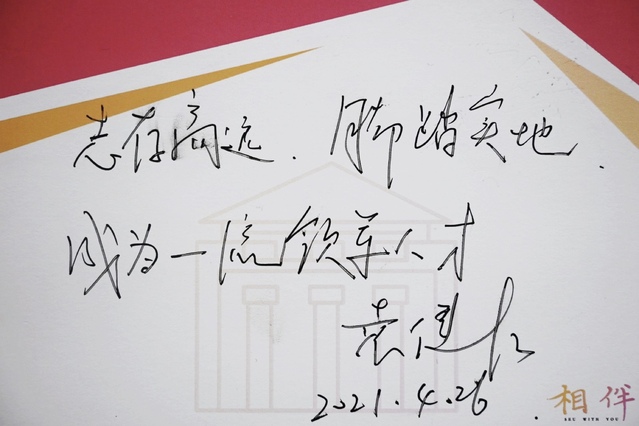 志存高远、脚踏实地、
成为一流领军人才
袁健红
2021.4.26
相伴
SEU WITH YOU